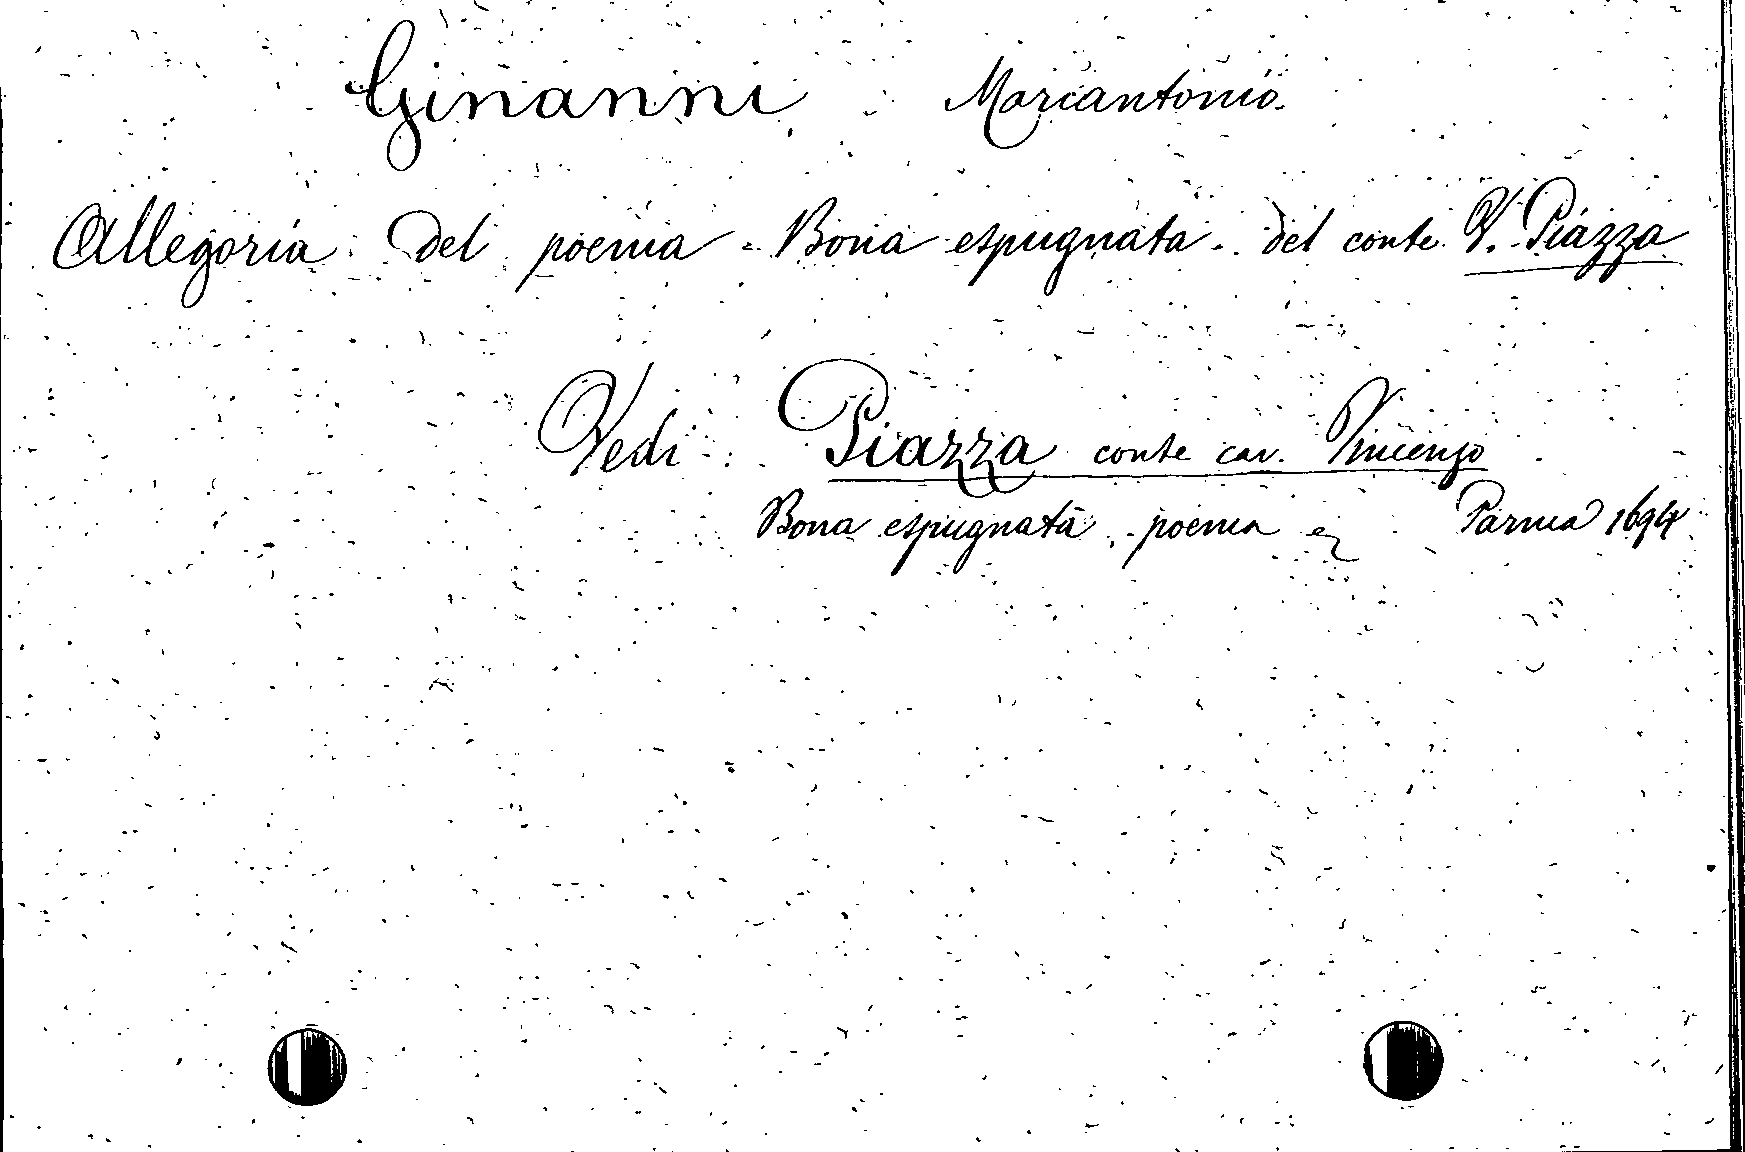 Ginanni Marcantonio.
Allegoria del poema - Bona espugnata - del conte V. Piazza
Vedi: Piazza conte cav. Vincenzo
Bona espugnata, poema Parma 1694